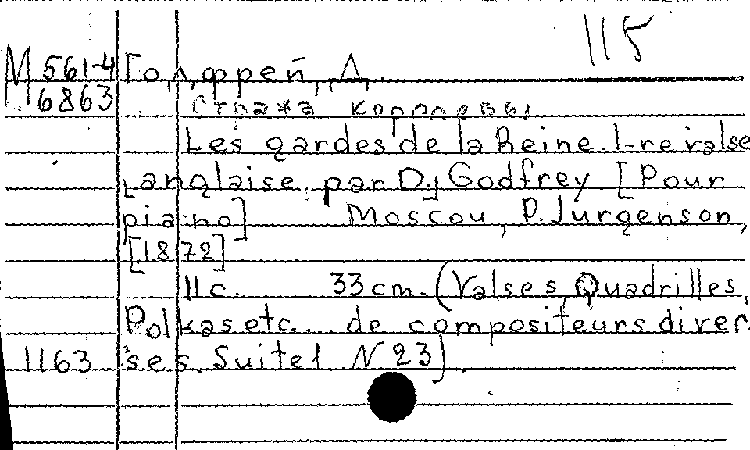 115
М 561-4 Годфрей, Д.
6863 Стража королевы
Les gardes de la Reine. 1-re valse
anglaise par D. Godfrey [Pour
piano] Moscou, P. Jurgenson,
[1872]
11 c. 33 cm. (Valses, Quadrilles,
Polkas etc. de compositeurs diver
1163 ses. Suite 1 N 23).